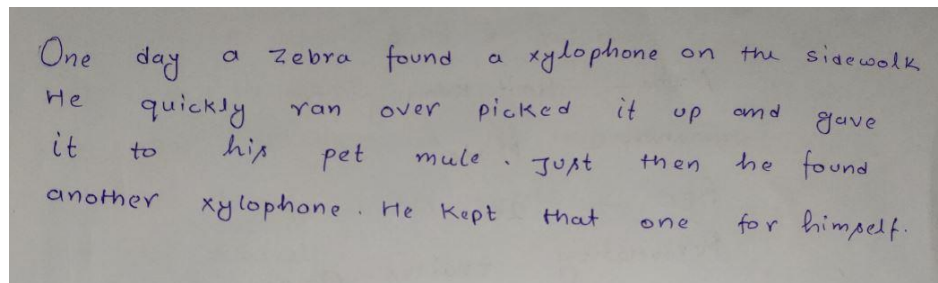 One day a zebra found a xylophone on the sidewalk
He quickly ran over picked it up and gave
it to his pet mule. Just then he found
another xylophone. He kept that one for himself.